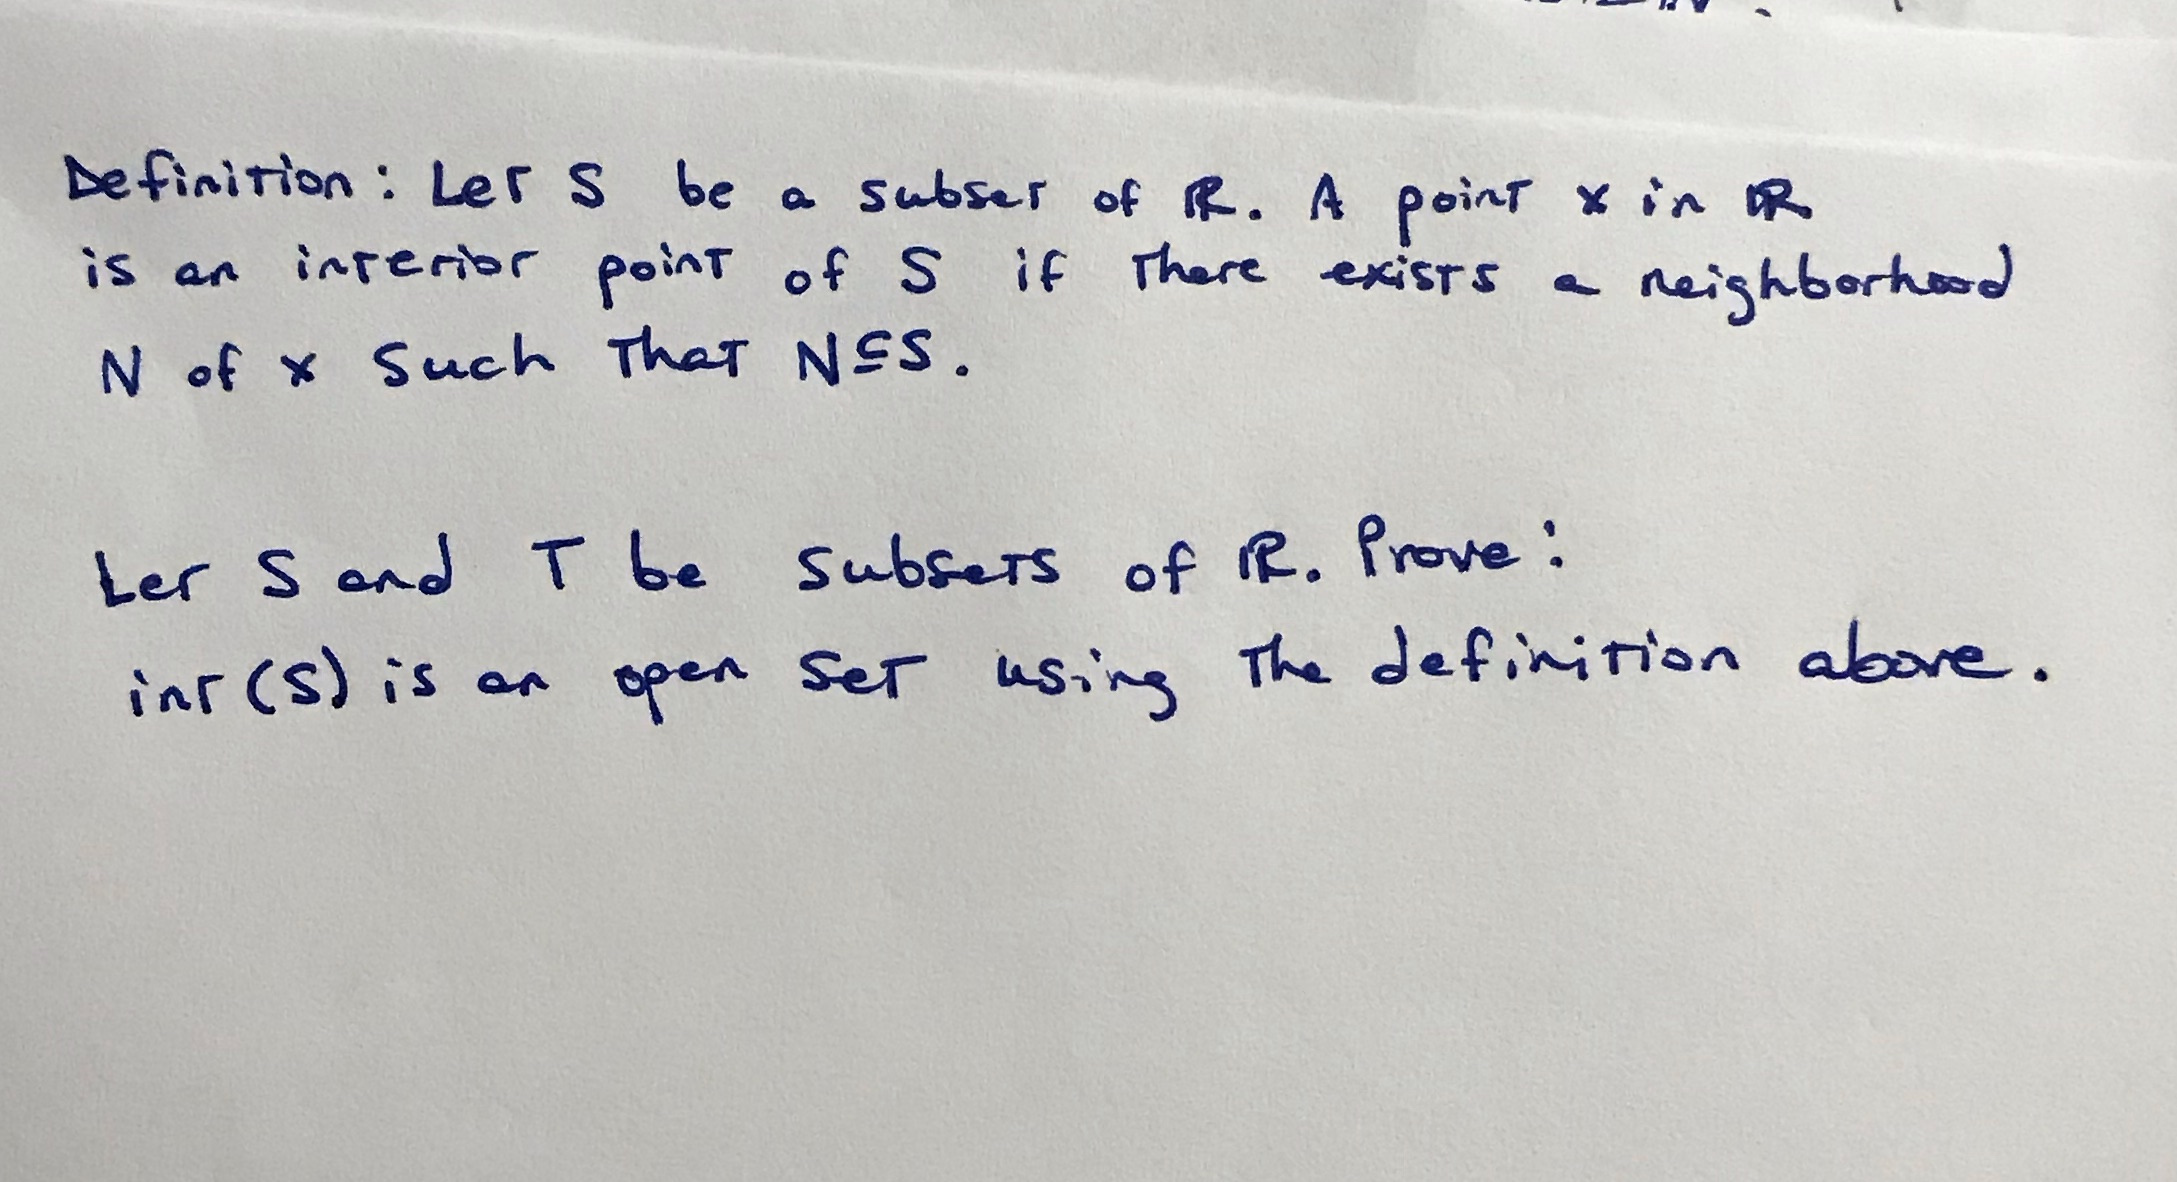 Definition: Let S be a subset of ℝ. A point x in ℝ
is an interior point of S if there exists a neighborhood
N of x such that N⊆S.
Let S and T be subsets of ℝ. Prove:
int(S) is an open set using the definition above.